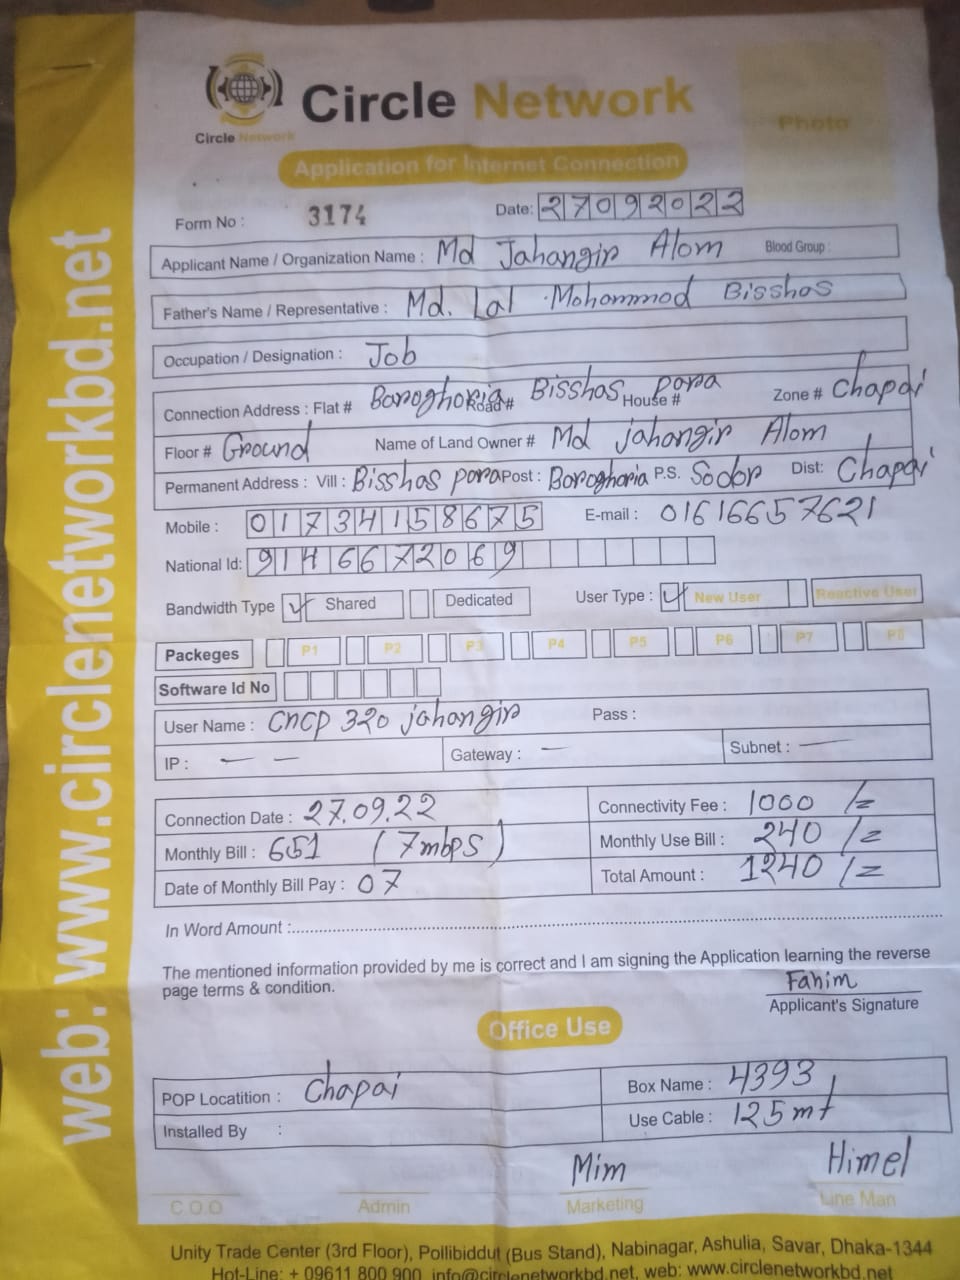 Circle Network
Circle Network
Photo
Application for Internet Connection
Form No : 3174 Date: 27092022
Applicant Name / Organization Name : Md Jahangir Alom Blood Group :
Father's Name / Representative : Md. Lal Mohommod Bisshas
Occupation / Designation : Job
Connection Address : Flat # Baroghoria Road # Bisshas House # para Zone # Chapai
Floor # Ground Name of Land Owner # Md jahangir Alom
Permanent Address : Vill : Bisshas para Post : Baroghoria P.S. Sodor Dist: Chapai
Mobile : 01734158675 E-mail : 01616657621
National Id: 9146672069
Bandwidth Type Shared Dedicated User Type : New User Reactive User
Packeges P1 P2 P3 P4 P5 P6 P7 P8
Software Id No
User Name : CnCp 320 jahangir Pass :
IP : — — Gateway : — Subnet : —
Connection Date : 27.09.22 Connectivity Fee : 1000 /=
Monthly Bill : 651 (7mbps) Monthly Use Bill : 240 /=
Date of Monthly Bill Pay : 07 Total Amount : 1240 /=
In Word Amount :
The mentioned information provided by me is correct and I am signing the Application learning the reverse
page terms & condition.
Fahim
Applicant's Signature
Office Use
POP Locatition : Chapai Box Name : 4393
Installed By : Use Cable : 125 mt
Mim Himel
C.O.O Admin Marketing Line Man
Unity Trade Center (3rd Floor), Pollibiddut (Bus Stand), Nabinagar, Ashulia, Savar, Dhaka-1344
Hot-Line: + 09611 800 900, info@circlenetworkbd.net, web: www.circlenetworkbd.net
web: www.circlenetworkbd.net